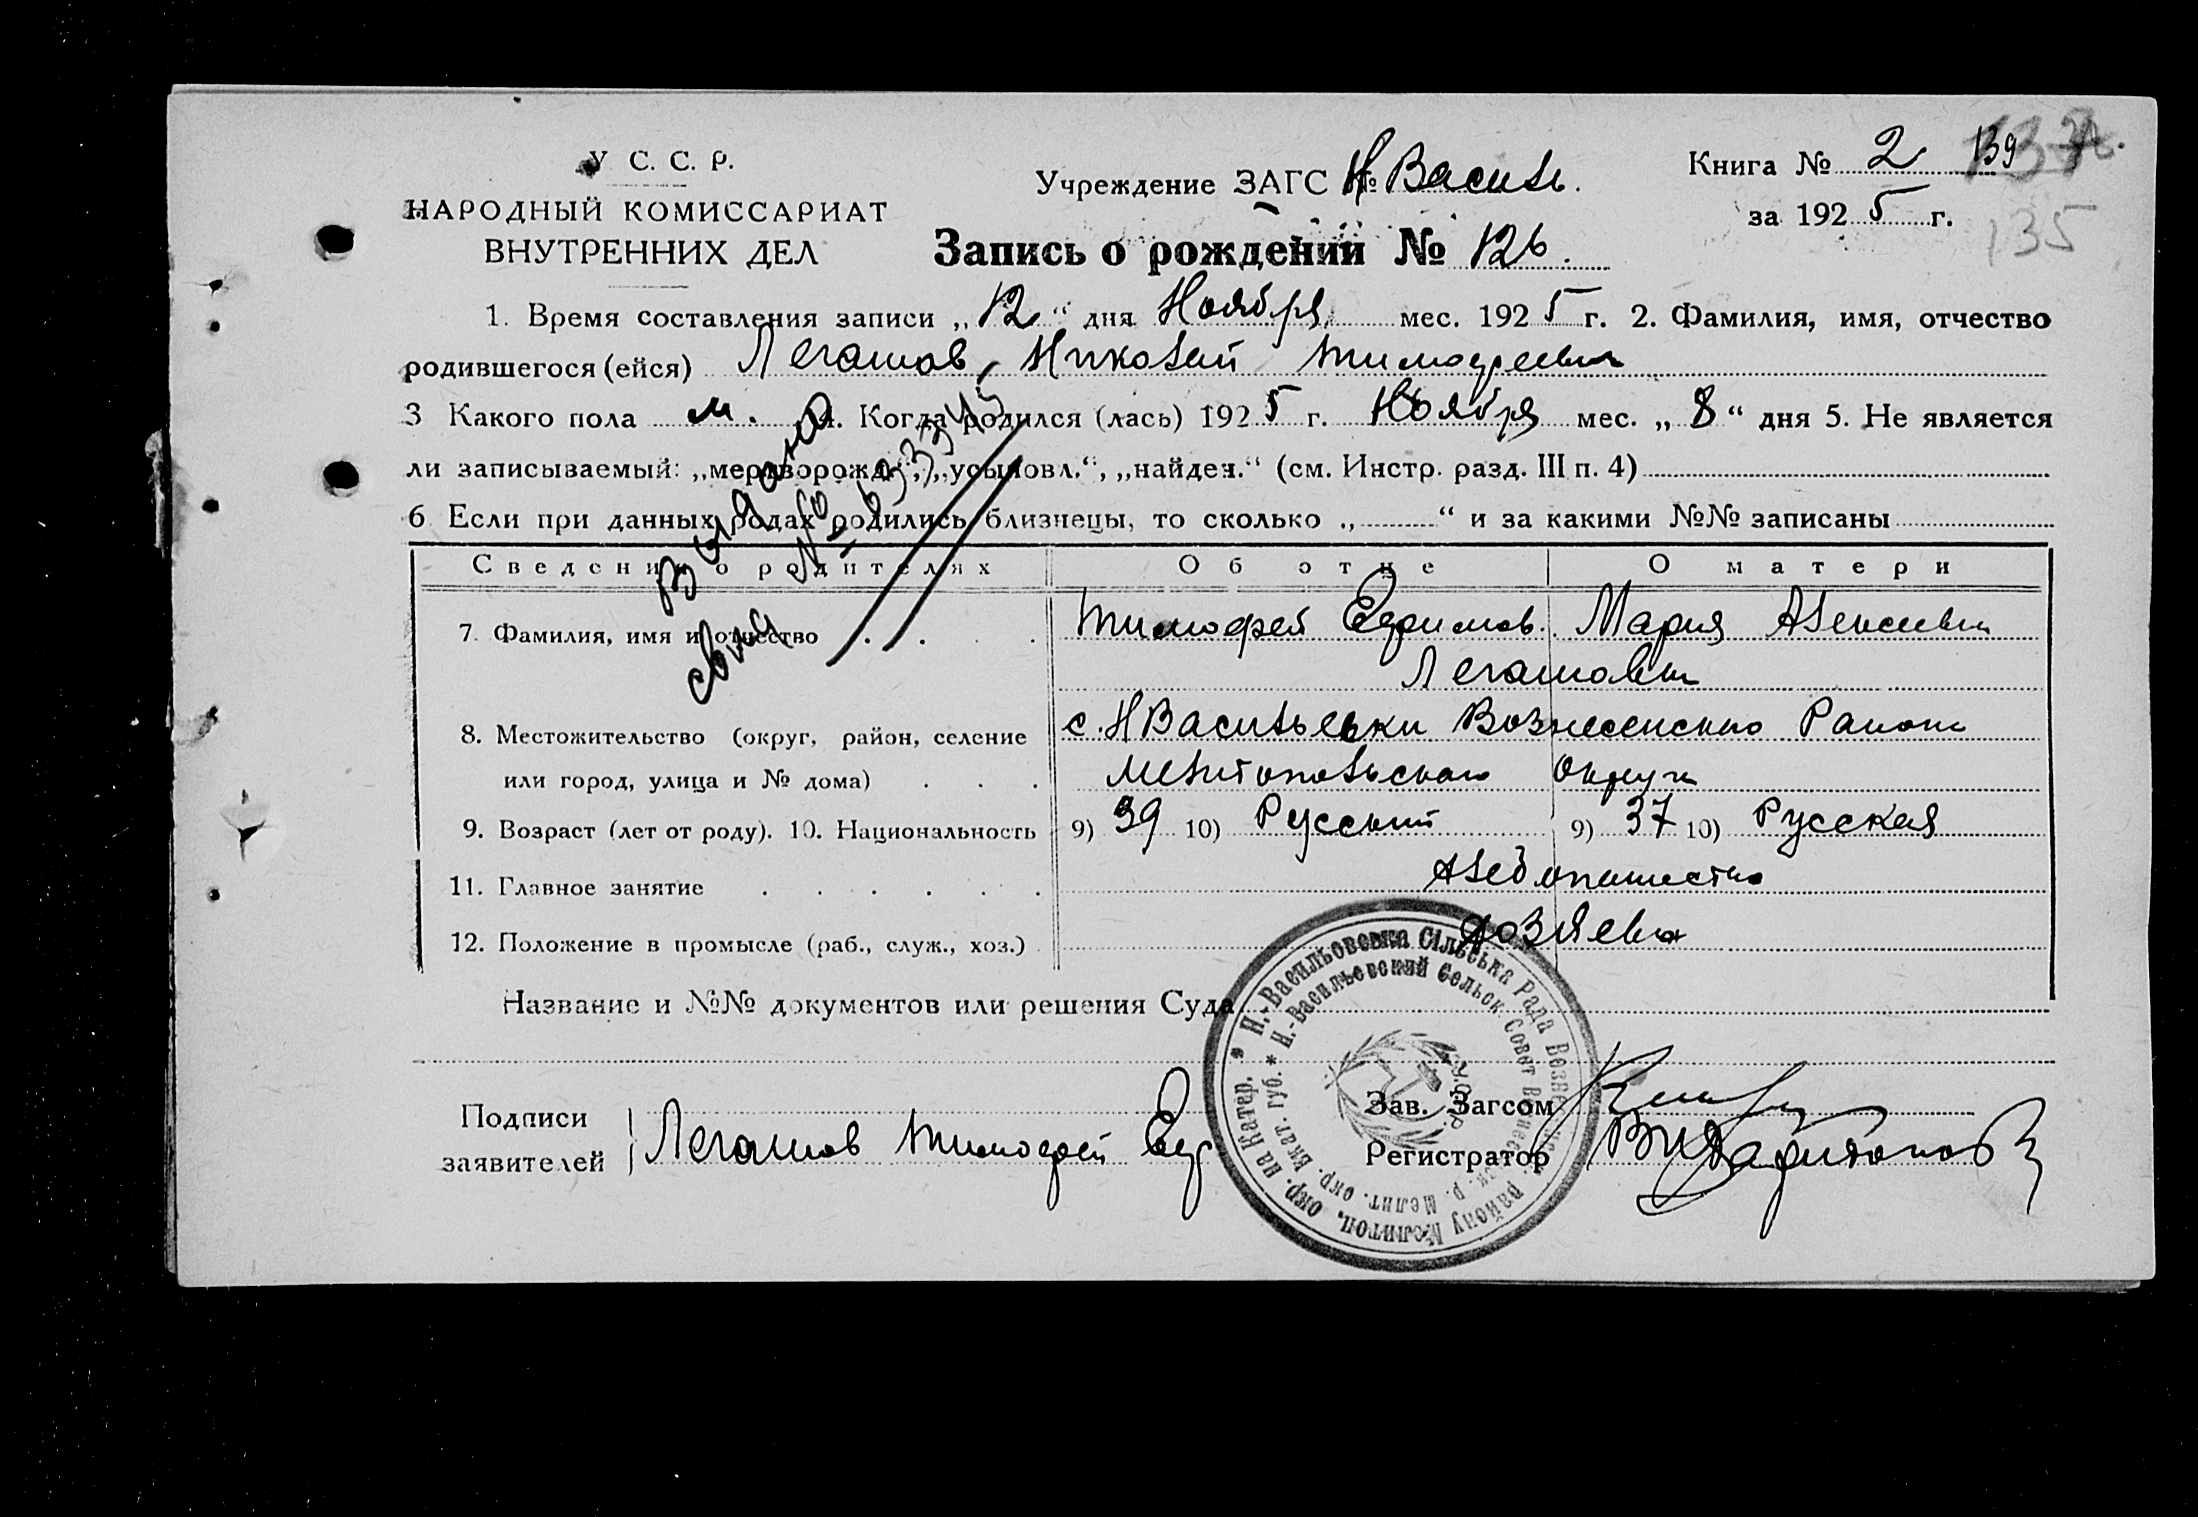 У С. С. Р.
НАРОДНЫЙ КОМИССАРИАТ
ВНУТРЕННИХ ДЕЛ
Учреждение ЗАГС № Н Василь.
Книга № 2 139
за 1925 г. 135
Запись о рождении № 126.
1. Время составления записи „12“ дня Ноября мес. 1925 г. 2. Фамилия, имя, отчество
родившегося (ейся) Легашов, Николай Тимофеевич
3 Какого пола м. 4. Когда родился (лась) 1925 г. Ноября мес. „8“ дня 5. Не является
ли записываемый: „мертворожд.“, „усыновл.“, „найден.“ (см. Инстр. разд. III п. 4)
6 Если при данных родах родились близнецы, то сколько „ “ и за какими №№ записаны
Выдано
свид №
Сведения о родителях Об отце О матери
7. Фамилия, имя и отчество Тимофей Ефимов. Мария Алексеевна
Легашовы
8. Местожительство (округ, район, селение с. Н Васильевки Вознесенского Района
или город, улица и № дома) Мелитопольского Округа
9. Возраст (лет от роду). 10. Национальность 9) 39 10) Русский 9) 37 10) Русская
11. Главное занятие Хлебопашество
12. Положение в промысле (раб., служ., хоз.) хозяева
Название и №№ документов или решения Суда
Н.-Васильовська Сільська Рада Вознес. району Мелитоп. окр. на Катер.
Н.-Васильевский Сельск. Совет Вознесенск. р. Мелит. окр. Екат. губ.
Подписи
заявителей Легашов Тимофей Еф
Зав. Загсом
Регистратор